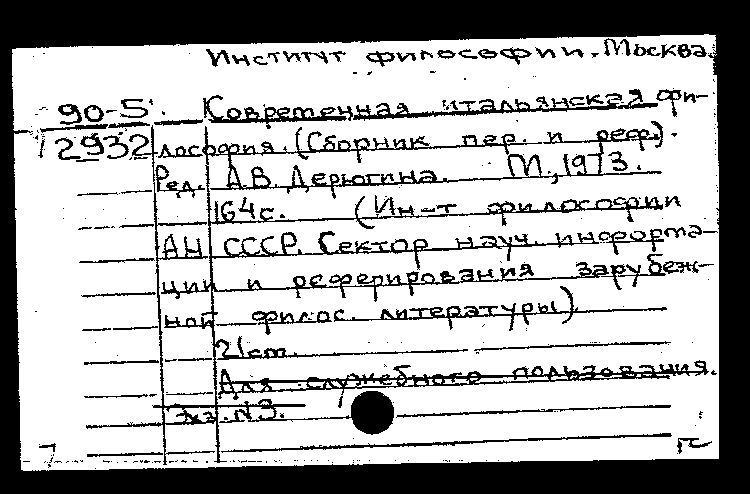 Институт философии. Москва.
90-5. Современная итальянская фи-
2932 лософия. (Сборник пер. и реф.).
Ред. А.В. Дерюгина. М., 1973.
164 с. (Ин-т философии
АН СССР. Сектор науч. информа-
ции и реферирования зарубеж-
ной филос. литературы)
21 ст.
Для служебного пользования.
Экз. N3.